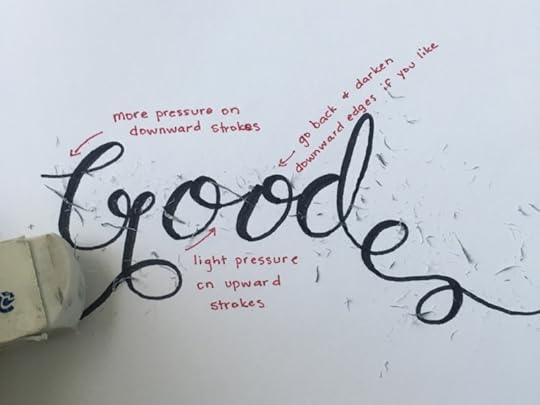 more pressure on
downward strokes
go back & darken
downward edges if you like
Good
light pressure
on upward
strokes